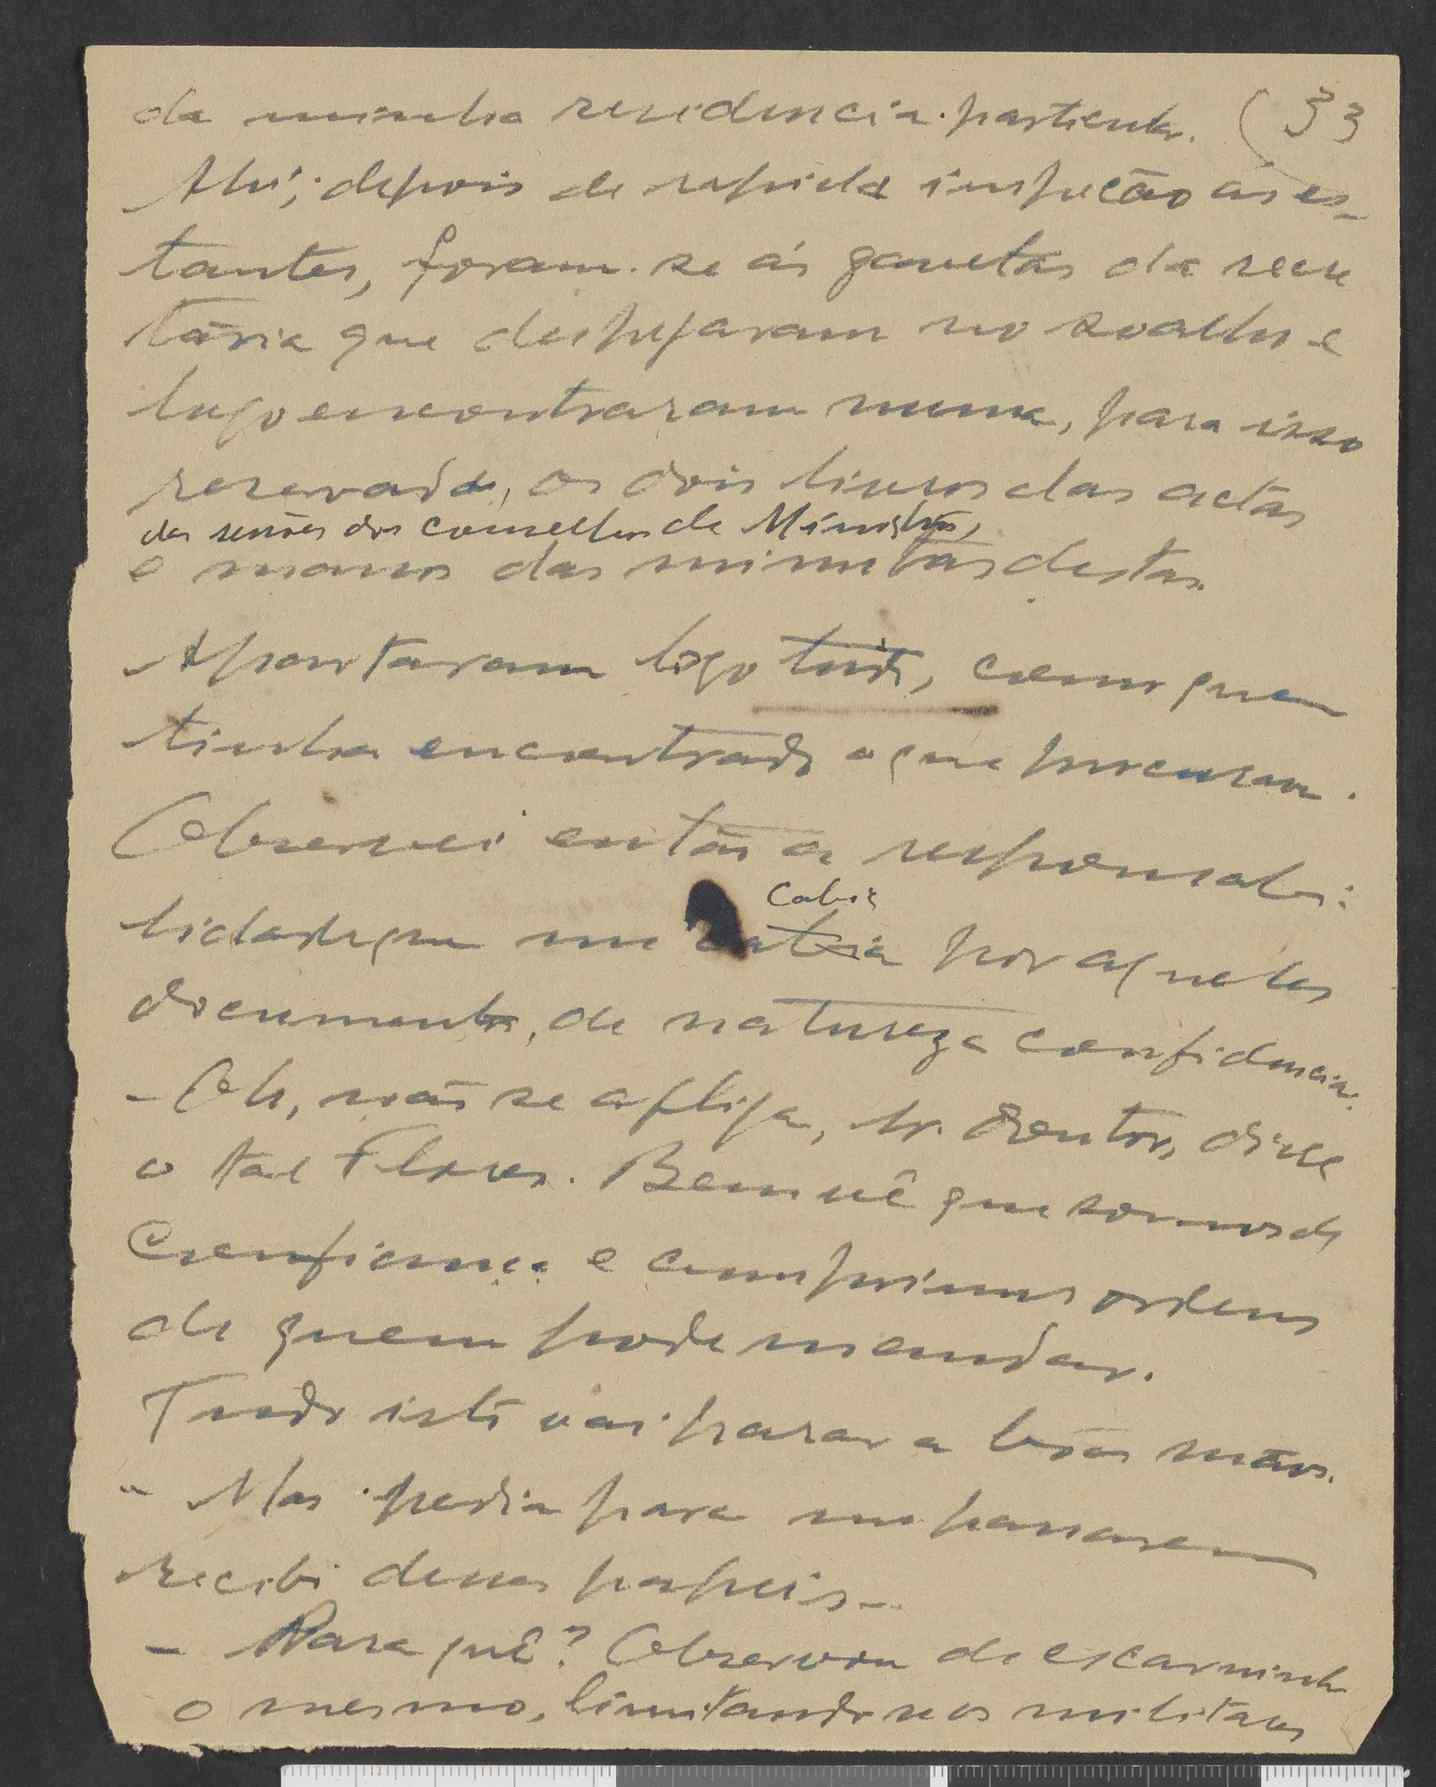 da minha residencia particular. (33
Ahi, depois de rapida inspeção ás es-
tantes, foram-se ás gavetas da secre
tária que despejaram no soalho e
logo encontraram numa, para isso
reservada, os dois livros das actas
das sessões dos conselhos de Ministros,
e maços das minutas destas.
Apontaram logo tudo, como quem
tinha encontrado o que procurava.
Observei então a responsabi-
lidade que me cabia por aqueles
documentos, de natureza confidencial.
- Oh, não se aflija, Sr. Doutor, disse
o tal Flores. Bem vê que somos de
confiança e cumprimos ordens
de quem pode mandar.
Tudo isto vai parar a bôas mãos.
- Mas pedia para me passarem
recibo desses papeis...
- Para quê? Observou de escarninho
o mesmo, limitando-se os militares